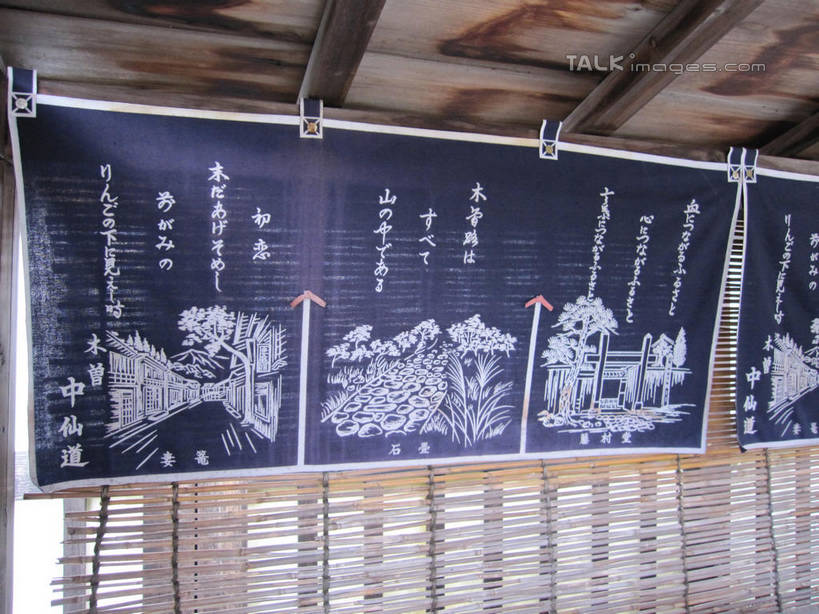 TALKimages.com
血につながるふるさと
心につながるふるさと
言葉につながるふるさと
藤村堂
木曽路は
すべて
山の中である
石畳
初恋
未だあげそめし
前がみの
りんごの下に見えし時
木曽
中仙道
妻籠
前がみの
りんごの下に見えし時
木曽
中仙道
妻籠